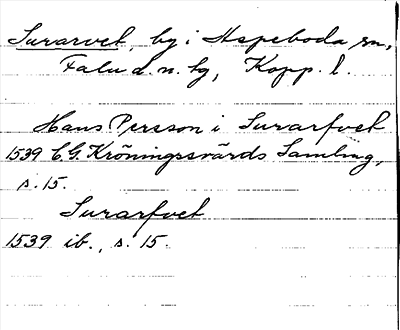 Surarvet, by i Aspeboda sn,
Falu d. n. tg, Kopp. l.
Hans Persson i Surarfvet
1539 C. G. Kröningssvärds Samling,
s. 15.
Surarfvet
1539 ib., s. 15.